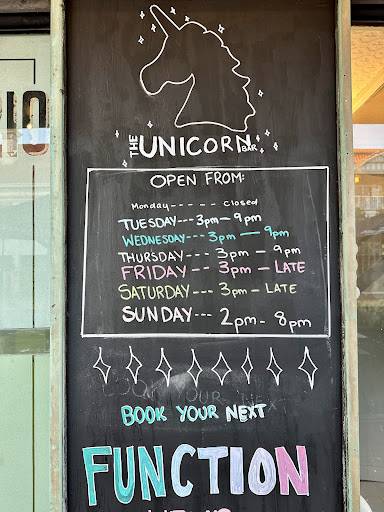 THE UNICORN BAR
OPEN FROM:
Monday - - - - - closed
TUESDAY --- 3pm – 9pm
WEDNESDAY --- 3pm — 9pm
THURSDAY --- 3pm – 9pm
FRIDAY -- 3pm – LATE
SATURDAY --- 3pm – LATE
SUNDAY --- 2pm - 8pm
BOOK YOUR NEXT
FUNCTION